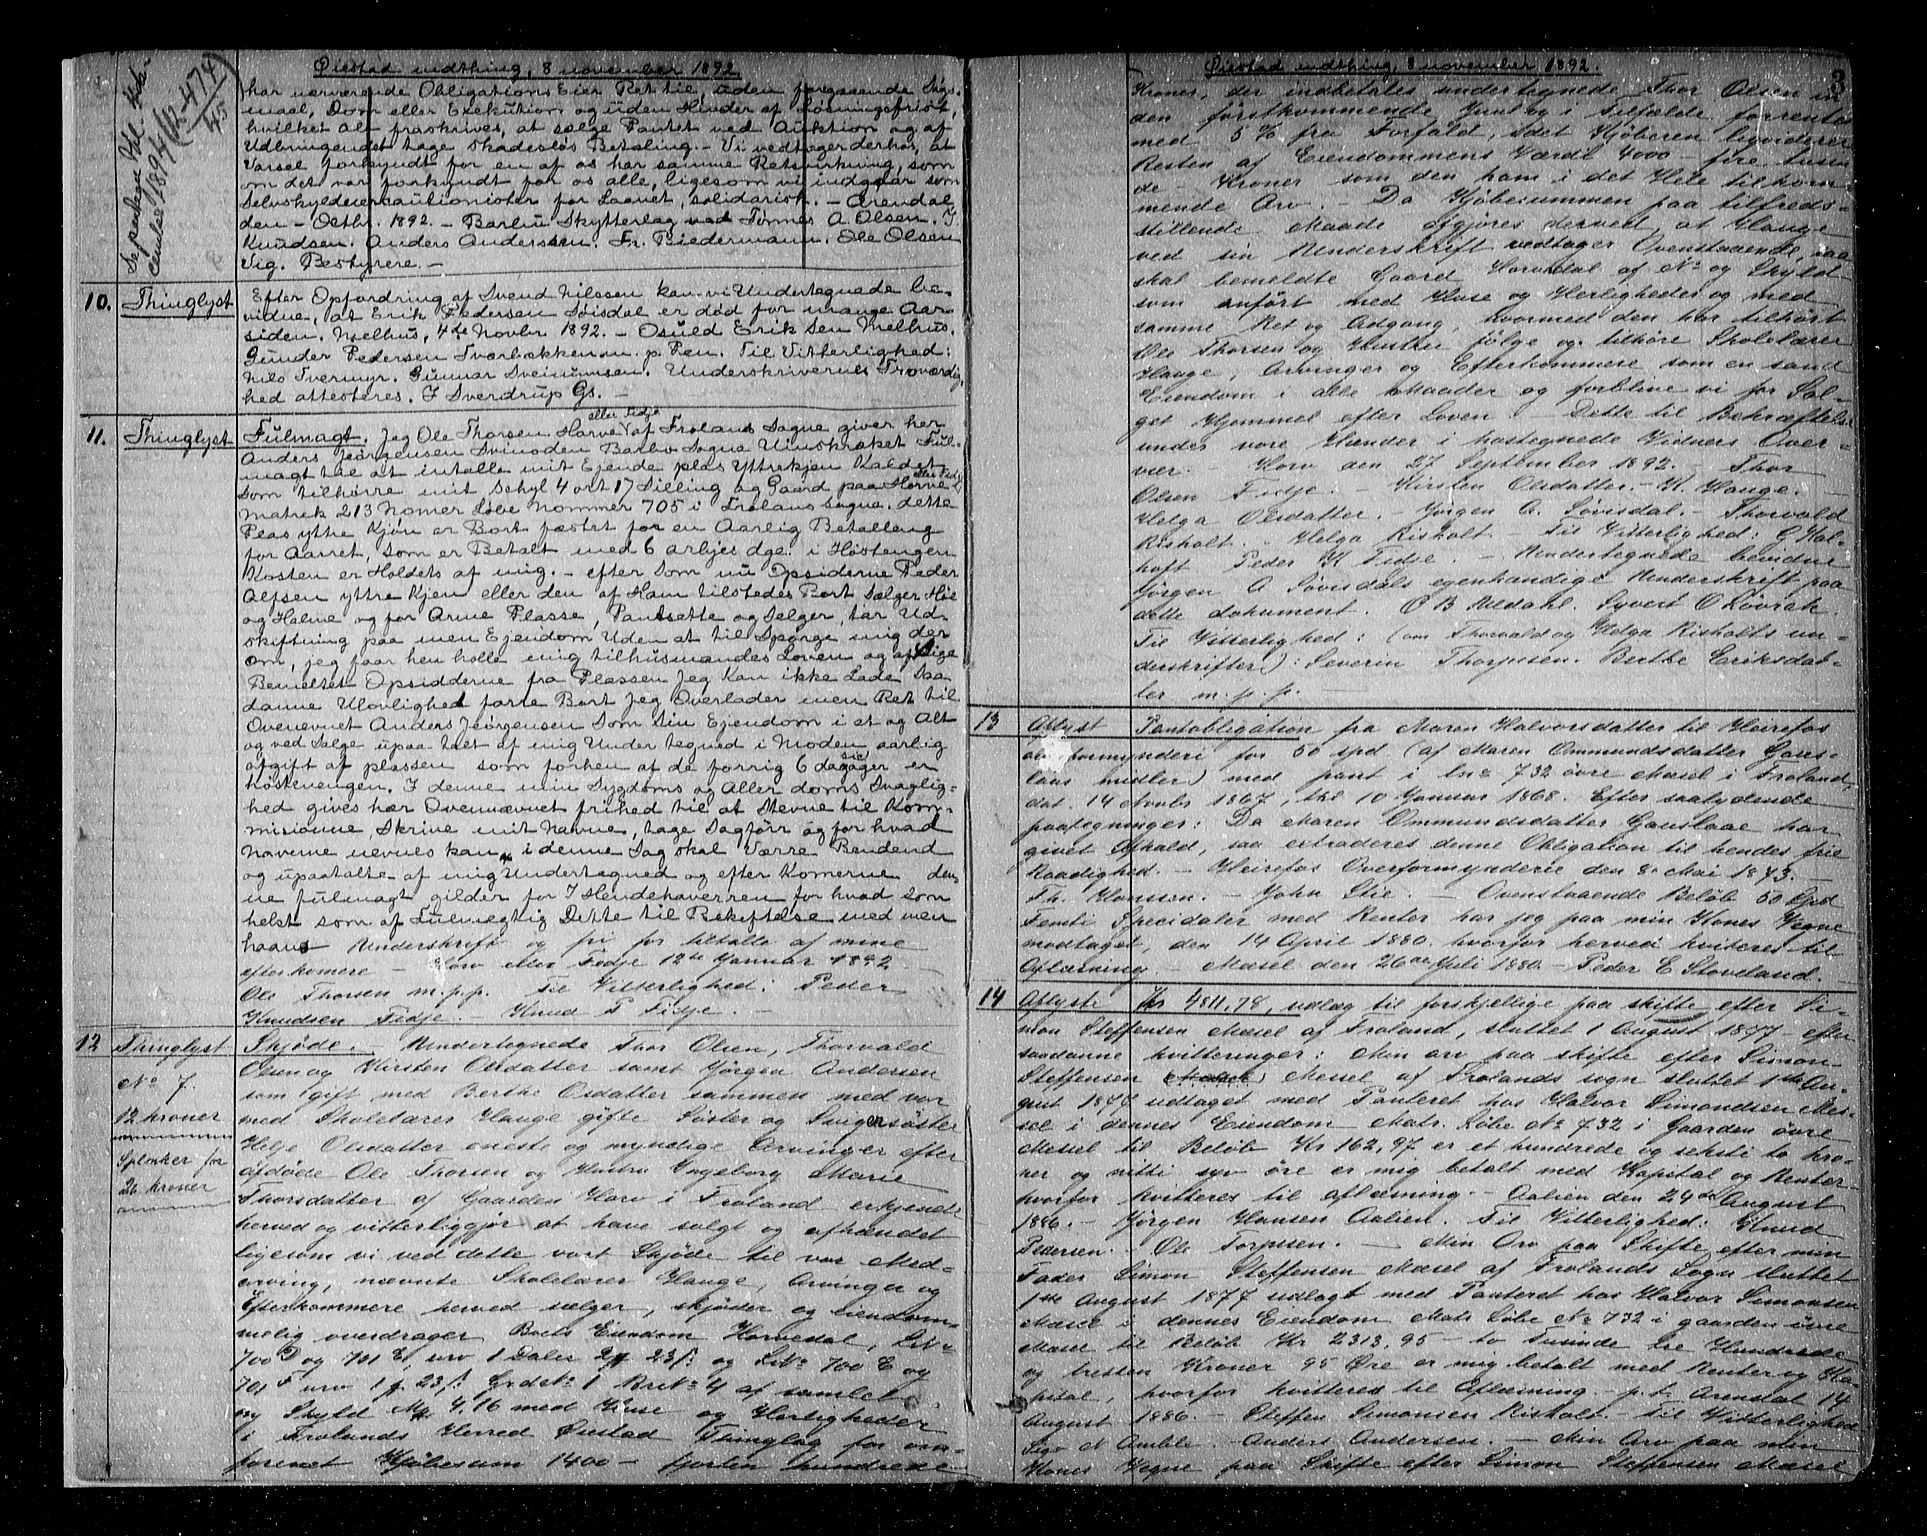 Øiestad indthing, 8 november 1892.
har nærværende Obligations Eier Ret til, uden foregaaende Søgs-
maal, Dom eller Exekution og uden Hinder af Løsningsfrist,
hvilket alt fraskrives, at sælge Pantet ved Auktion og af
Udbringendet tage skadesløs Betaling. - Vi vedtager derhos, at
Varsel forkyndt for en af os har samme Retsvirkning, som
om det var forkyndt for os alle, ligesom vi indgaar som
Selvskyldnercautionister for Laanet, solidarisk. - Arendal
den - Octbr. 1892. - Barbu Skytterlag ved Tønnes A Olsen. J
Knudsen. Anders Anderssen. Fr. Biedermann. Ole Olsen
Vig. Bestyrere. -
10. Thinglyst Efter Opfordring af Svend Nilssen kan vi Undertegnede be-
vidne, at Erik Pedersen Søisdal er død for mange Aar
siden. Mjelhus, 4de Novbr. 1892. - Osuld Eriksen Melhus.
Gunder Pedersen Tvorbækkenson. p. Pen. Til Vitterlighed:
Nils Tvermyr. Gunnar Sveinumsen. Underskrivernes Troværdig-
hed attesteres. J Sverdrup Gs. -
eller Fidje
11. Thinglyst Fulmagt. Jeg Ole Thorsen Harve af Frolans Sogne giver her
Anders Jeörgensen Svinoden Barbo Sogne Uinskræket Ful-
magt til at intalle mit Ejende plas Yttrekjen Kaldet
Som tilhørre mit Schyl 4 ort 17 Silling og Gaard paa Horve
Matrek 213 Nomer Løbe Nommer 705 i Frolans sogne. dette
Plas yttre Kjøn er Bort fæstet for en Aarlig Betalleng
for Aaret, som er Betalt med 6 arbjes dge. i Høstengen
Kosten er Holdets af mig. - efter som nu Opsiderne Peder
Alfsen yttre Kjen eller den af Ham tilstedes Bort Sælger Høe
og Halme og for Arme Plasse, Pantsette og Selger, tar Ud-
skiftning paa men Ejendom Uden at til Spørge mig der
om, jeg faar hen holle mig til husmandes Loven og aflige
Bemeltet Opsidderne fra Plassen Jeg Kan ikke Lade Saa
danne Ulovlighed farte Bort Jeg Overlader men Ret til
Ovenevnt Anders Jeörgensen Som sin Ejendom i et og Alt
og ved Salge upaa talt af mig Under tegned i Moden aarlig
afgift af plassen som forhen af de forrig 6 dagager er
høstevengen. I denne min Sygdoms og Aller doms Svaglig-
hed gives har Ovennævnet frihed til at Stevne til Kom-
misionne Skrive mit Navne, tage Sagførr og for hvad
Naverne nevnes kan, i denne Sag skal Værre Bendend
og upaatalte af mig Undertegned og efter Komerne den-
ne fulmagt gilder for I Hendehaverren for hvad som
helst som af Fulmegtig Dette til Bekreftelse med men
haans Underskrift og fri for tiltalle af mine
efterkomere - Horv eller Fidje 12te Januar 1892
Ole Thorsen m.p.p. Til Vitterlighed: Peder
Knudsen Fidje. - Knud P Fidje. -
12 Thinglyst Skjøde. - Undertegnede Thor Olsen, Thorvald
No 7. Olsen og Kirsten Olsdatter samt Jørgen Andersen
12 kroner som gift med Berthe Olsdatter sammen med vor
med Skolelærer Hauge gifte Søster og Svigersøster
Helje Olsdatter eneste og myndige Arvinger efter
afdøde Ole Thorsen og Hustru Ingeborg Marie
26 kroner Thorsdatter af Gaarden Horv i Froland erkjende
herved og vitterliggjør at have solgt og afhændet
ligesom vi ved dette vort Skjøde til vor Med-
arving, nævnte Skolelærer Hauge, Arvinger og
Efterkommere herved sælger, skjøder og eiendom-
melig overdrager Boets Eiendom Horvedal, L.No
700 D og 701 E, urv 1 Daler 2 ƒ 23 ß og L.No 700 E og
701 F urv 1 ƒ. 23 ß. Grd.No 1 Br.No 4 af samlet
ny Skyld Mk 4.16 med Huse og Herligheder
i Frolands Herred Øiestad Thinglag for om-
forenet Kjøbesum 1400 - fjorten hundrede
3
Øiestad indthing, 8 november 1892.
Kroner, der indbetales undertegnede Thor Olsen in-
den førstkommende Juul og i Tilfælde forrentes
med 5 % fra Forfald, idet Kjøberen liqviderer
Resten af Eiendommens Værdi 4000 - fire tusin-
de - Kroner som den ham i det Hele tilkom-
mende Arv. - Da Kjøbesummen paa tilfreds-
stillende Maade afgjøres derved, at Hauge
ved sin Underskrift vedtager Ovenstaaende, saa
skal bemeldte Gaard Horvedal af No og Skyld
som anført med Huse og Herligheder og med
samme Ret og Adgang, hvormed den har tilhørt
Ole Thorsen og Hustru følge og tilhøre Skolelærer
Hauge, Arvinger og Efterkommere som en sand
Eiendom i alle Maader og forblive vi for Sal-
get Hjemmel efter Loven - Dette til Bekræftelse
under vore Hænder i hostegnede Vidners Over-
vær. - Horv den 27 September 1892. - Thor
Olsen Fidje. - Kirsten Olsdatter. - K. Hauge. -
Helga Olsdatter. - Jørgen A. Søvisdal. - Thorvald
Risholt. - Helga Risholt. - Til Vitterlighed: G Hol-
hoft Peder K Fidje. - Undertegnede bevidne
Jørgen A Søvisdals egenhændige Underskrift paa
dette dokument. O B Nedahl. Syvert O Løvrak.
Til Vitterlighed: (om Thorvald og Helga Risholts un-
derskrifter): Severin Thorpesen. Berthe Eriksdat-
ter m.p.p. -
13 Aflyst Pantobligation fra Maren Halvorsdatter til Heirefos
overformynderi for 50 spd (af Maren Ommundsdatter Gaus-
laas midler) med pant i l.no 732 øvre Mæsel i Froland,
dat. 14 Novbr 1867, thl 10 Januar 1868. Efter saalydende
paategninger: Da Maren Ommundsdatter Gauslaae har
givet Afkald, saa extraderes denne Obligation til hendes frie
Raadighed. - Heirefos Overformynderie den 8. Mai 1873. -
Th. Hanssen. - John Lie. - Ovenstaaende Beløb 50 Spd
Femti Specidaler med Renter har jeg paa min Kones Vegne
modtaget, den 14 April 1880. hvorfor herved kviteres til
Aflæsning. - Mæsel den 26de Juli 1880 - Peder E Stoveland.
14 Aflyste Kr 4811,78, udlæg til forskjellige paa skifte efter Si-
mon Steffensen Mæsel af Froland, sluttet 1 August 1877 efter
saadanne kvitteringer: Min arv paa skifte efter Simon
Steffensen Mæsel af Frolands sogn sluttet 1ste Au-
gust 1877 udlaget med Panteret hos Halvor Simondsen Mæ-
sel i dennes Eiendom Matr. Løbe No 732 i Gaarden øvre
Mæsel til Beløb Kr 162,97 er et hundrede og seksti to kro-
ner og nitti syv øre er mig betalt med Kapital og Renter
hvorfor kvitteres til aflæsning. - Aalien den 24de August
1886. - Jørgen Hansen Aalien. Til Vitterlighed: Knud
Pedersen. - Ole Torpesen. - Min Arv paa Skifte efter min
Fader Simon Steffensen Mæsel af Frolands Sogn sluttet
1ste August 1877 udlagt med Panteret hos Halvor Simonsen
Mæsel i dennes Eiendom Matr Løbe No 732 i gaarden øvre
Mæsel til Beløb Kr 2313,95 - to Tusinde tre Hundrede
og tretten Kroner 95 Øre er mig betalt med Renter og Ka-
pital, hvorfor kvitteres til Aflæsning. p.t. Arendal 14
August 1886. - Steffen Simonsen Risholt. - Til Vitterlighed
Sign N Amble. Anders Andersen. - Min Arv paa min
Kones Vegne paa Skifte efter Simon Steffensen Mæsel